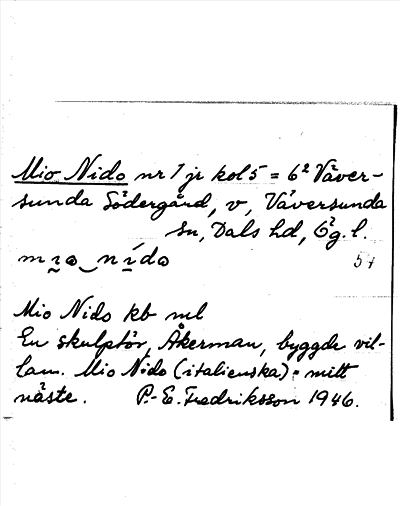 Mio Nido nr 1 jr kol 5 = 6² Väver-
sunda Södergård, v, Väversunda
sn, Dals hd, Ög. l.
mɪo‿nído 54
Mio Nido kb ml
En skulptör, Åkerman, byggde vil-
lan. Mio Nido (italienska) = mitt
näste. P.-E. Fredriksson 1946.